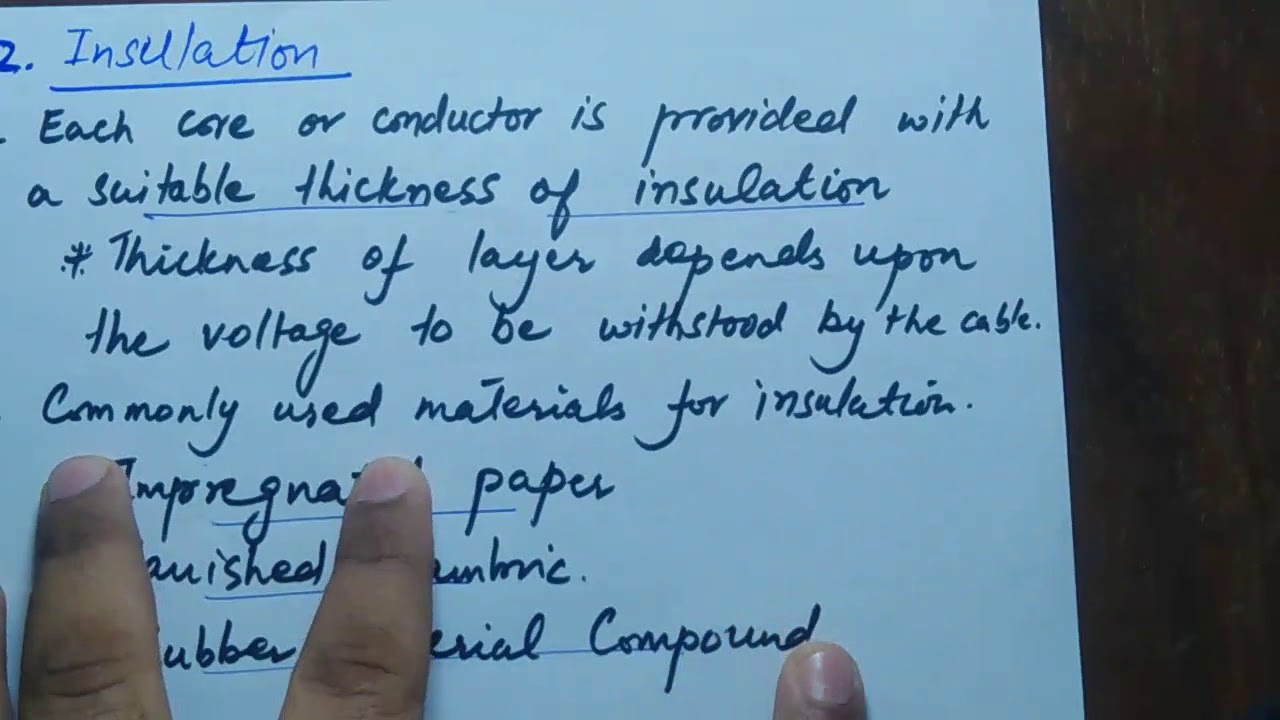 2. Insulation
Each core or conductor is provided with
a suitable thickness of insulation
* Thickness of layer depends upon
the voltage to be withstood by the cable.
Commonly used materials for insulation.
paper
Compound